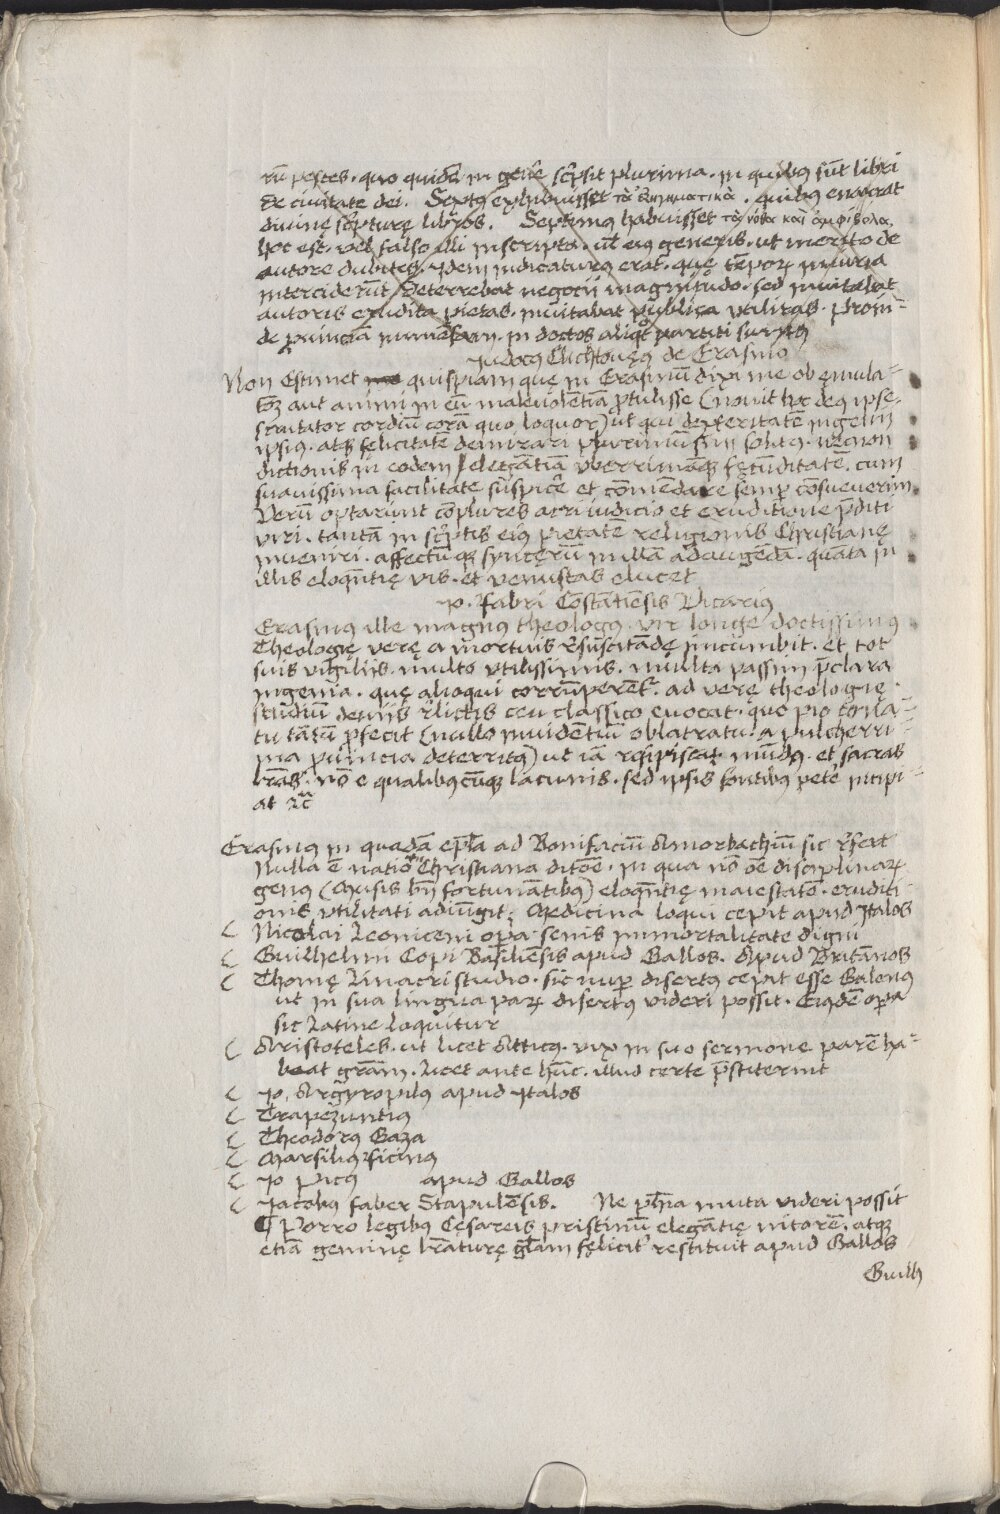 rū pestes. quo quidē in genē scp̄sit plurima. in quibꝰ sūt libri
de ciuitate dei. Sextꝰ exhibuisset τὰ ἐξηγηματικὰ. quibus enarrat
diuinę scpturę libros. Septimꝰ habuisset τὰ νόθα καὶ ἀμφίβολα.
hoc est. vel falso illi inscripta. ul eiꝰ generis. ut merito de
autore dubites. Idem indicaturꝰ erat. quę tēporꝝ iniuria
interciderūt. Deterrebat negocii magnitudo. sed inuitabat
autoris erudita pietas. inuitabat publica vtilitas. Proin=
de puinciā immēsam. in doctos aliqt partiti sumꝰ
Iudocꝰ Clichtoueꝰ de Erasmo
Non estimet quispiam quę in Erasmū dixi me ob ęmula=
tōȝ aut animi in eū maleuolentiā ptulisse (nouit hoc deꝰ ipse.
scrutator cordiū corā quo loquor) ut qui dexteritatē ingenii
ipsiꝰ. atqȝ felicitatē demirari plurimū sim solitꝰ. necnon
dictionis in eodem elegantiā vberrimāqȝ fęcūditatē. cum
suauissima facilitate suspicē et cōmendare semp cōsueuerim
Verū optariunt cōplures acri iudicio et eruditione pditi
viri. tantā in scptis eiꝰ pietatē religionis Christianę
inueniri. affectūqȝ syncęrū in illā adaugēdā. quāta in
illis eloquētię vis. et venustas elucet
Io. Fabri Constātiēsis Vicariꝰ
Erasmꝰ ille magnꝰ theologꝰ. vir longe doctissimꝰ
Theologię verę a mortuis rsuscitādę incumbit. et tot
suis vigiliis. multo vtilissimis. multa passim pclara
ingenia. quę alioqui corrūperentr. ad verę theologię
studiū deniis rlictis ceu classico euocat. quo pio cona=
tu tātū pfecit (nullo inuidentiū oblatratu. a pulcherri=
ma puincia deterritꝰ) ut iā resipiscat mūdꝰ. et sacras
lras. nō e qualibꝰcūqȝ lacunis. sed ipsis fontibꝰ petē incipi=
at ⁊c
Erasmꝰ in quadā epla ad Bonifaciū Amorbachiū sic rfert
Nulla ē natio Christiana ditōe. in qua nō oē disciplinarꝝ
genꝰ (Musis bn̄ fortunātibꝰ) eloquētię maiestatē. eruditi=
onis vtilitati adiūgit. Medicina loqui cepit apud Italos
Nicolai Leoniceni opa. senis immortalitate digni
Guilhelmi Copi Basiliēsis apud Gallos. Apud Britānos
Thomę Linacri studio. sic nup disertꝰ cepit esse Galenꝰ
ut in sua lingua parꝝ disertꝰ videri possit. Eiꝰdē opa
sic Latine loquitur
Aristoteles. ut licet Atticꝰ. vix in suo sermone parē ha=
beat grām. Licet ante hūc. illud certe pstiterint
Io. Argyropilus apud Italos
Trapezuntiꝰ
Theodorꝰ Gaza
Marsiliꝰ Ficinꝰ
Io Picꝰ apud Gallos
Iacobꝰ Faber Stapulēsis. Ne phia muta videri possit
¶ Porro legibꝰ Cęsareis pristinū elegātię nitorē. atqȝ
etiā geminę lraturę glam fęlicit restituit apud Gallos
Guilh